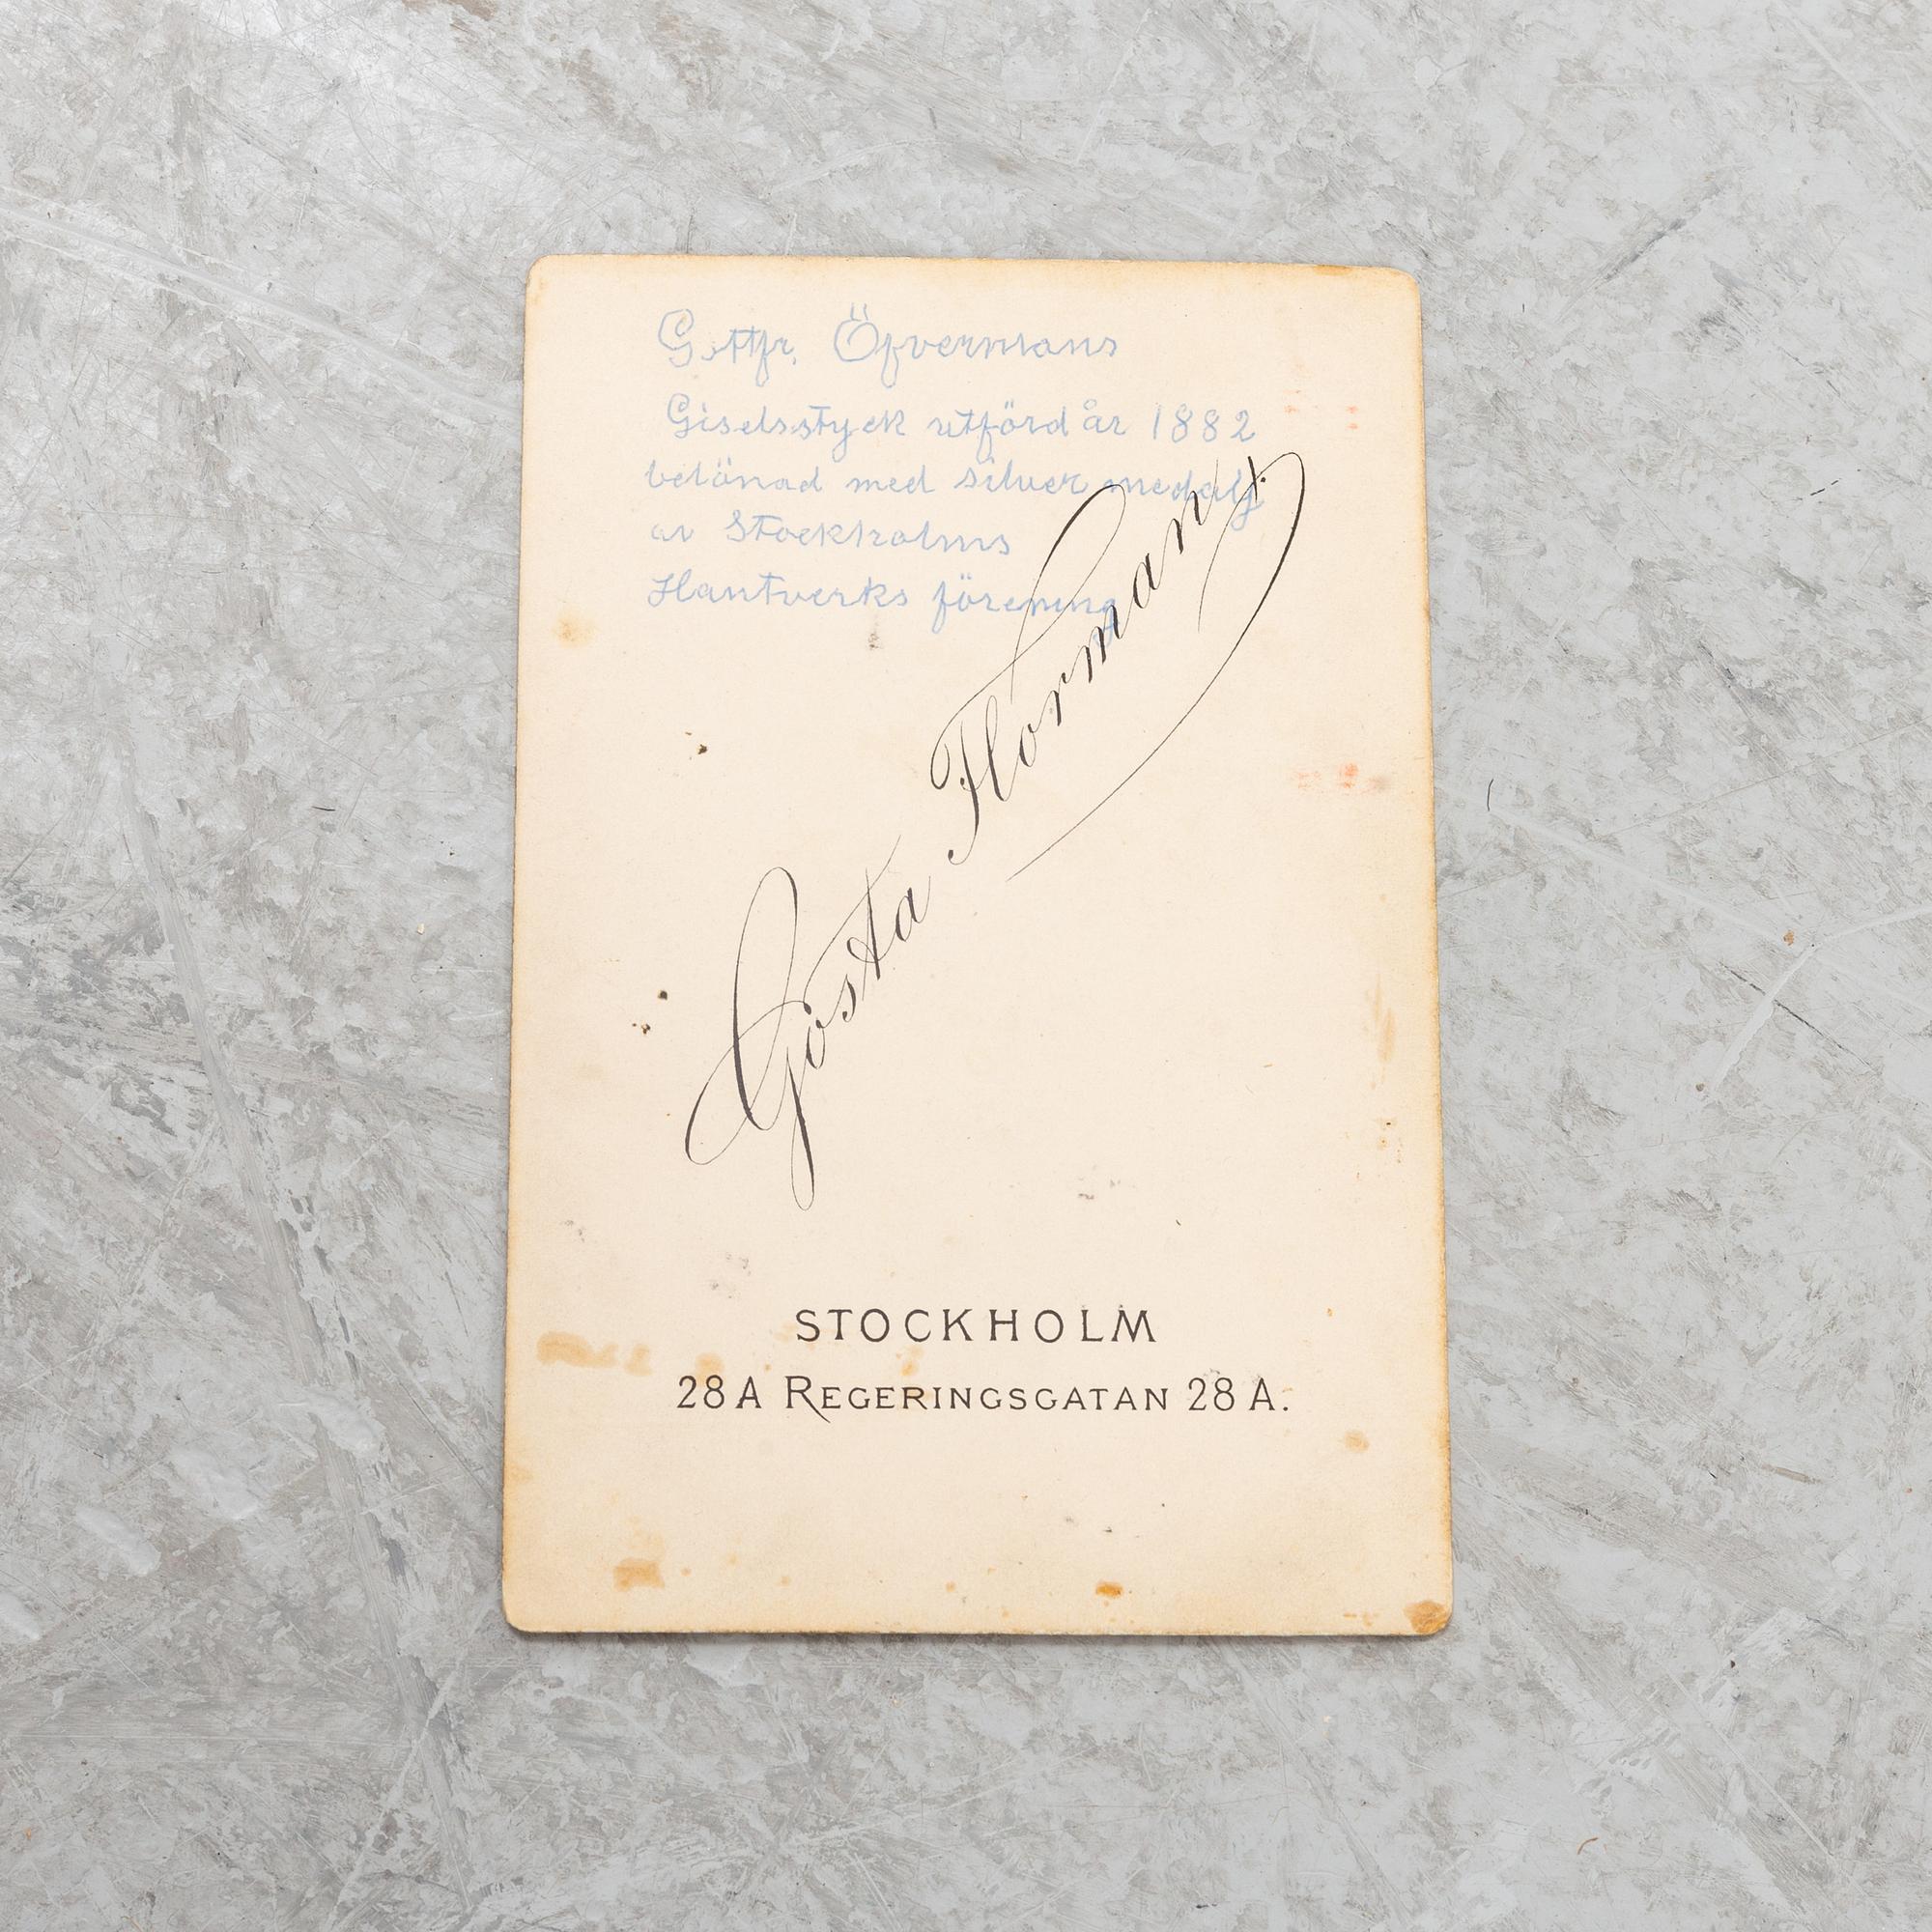 Gottfr. Öfvermans
Giselsstyck utförd år 1882
belönad med silver medalj
av Stockholms
Hantverks förening
Gösta Florman
STOCKHOLM
28 A REGERINGSGATAN 28 A.